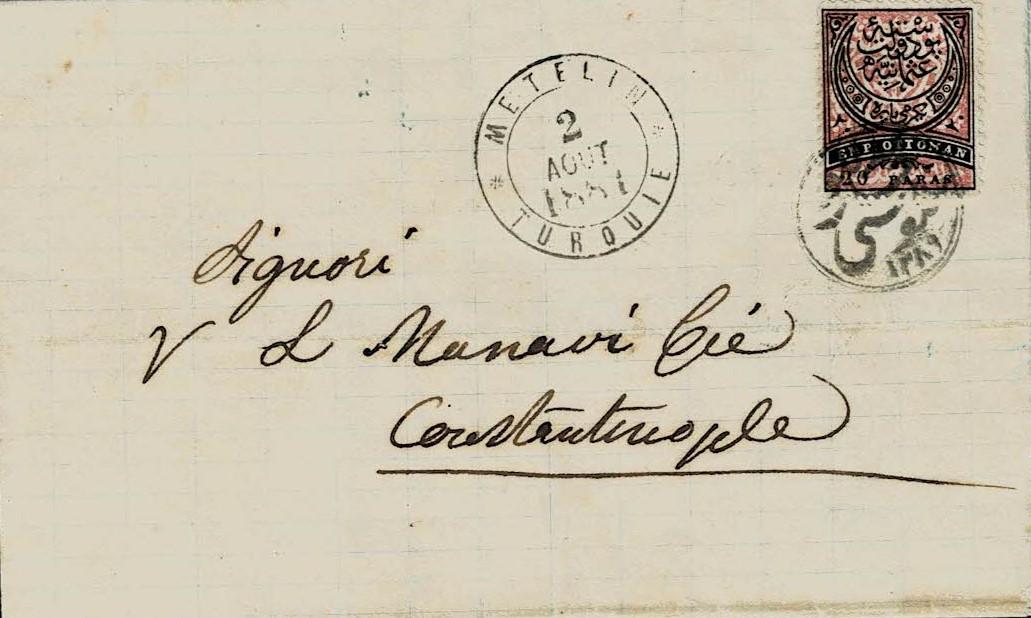 METELIN
2
AOUT
1881
TURQUIE
EMP OTTOMAN
20 PARAS
Signori
V L Manavi Cie
Constantinople